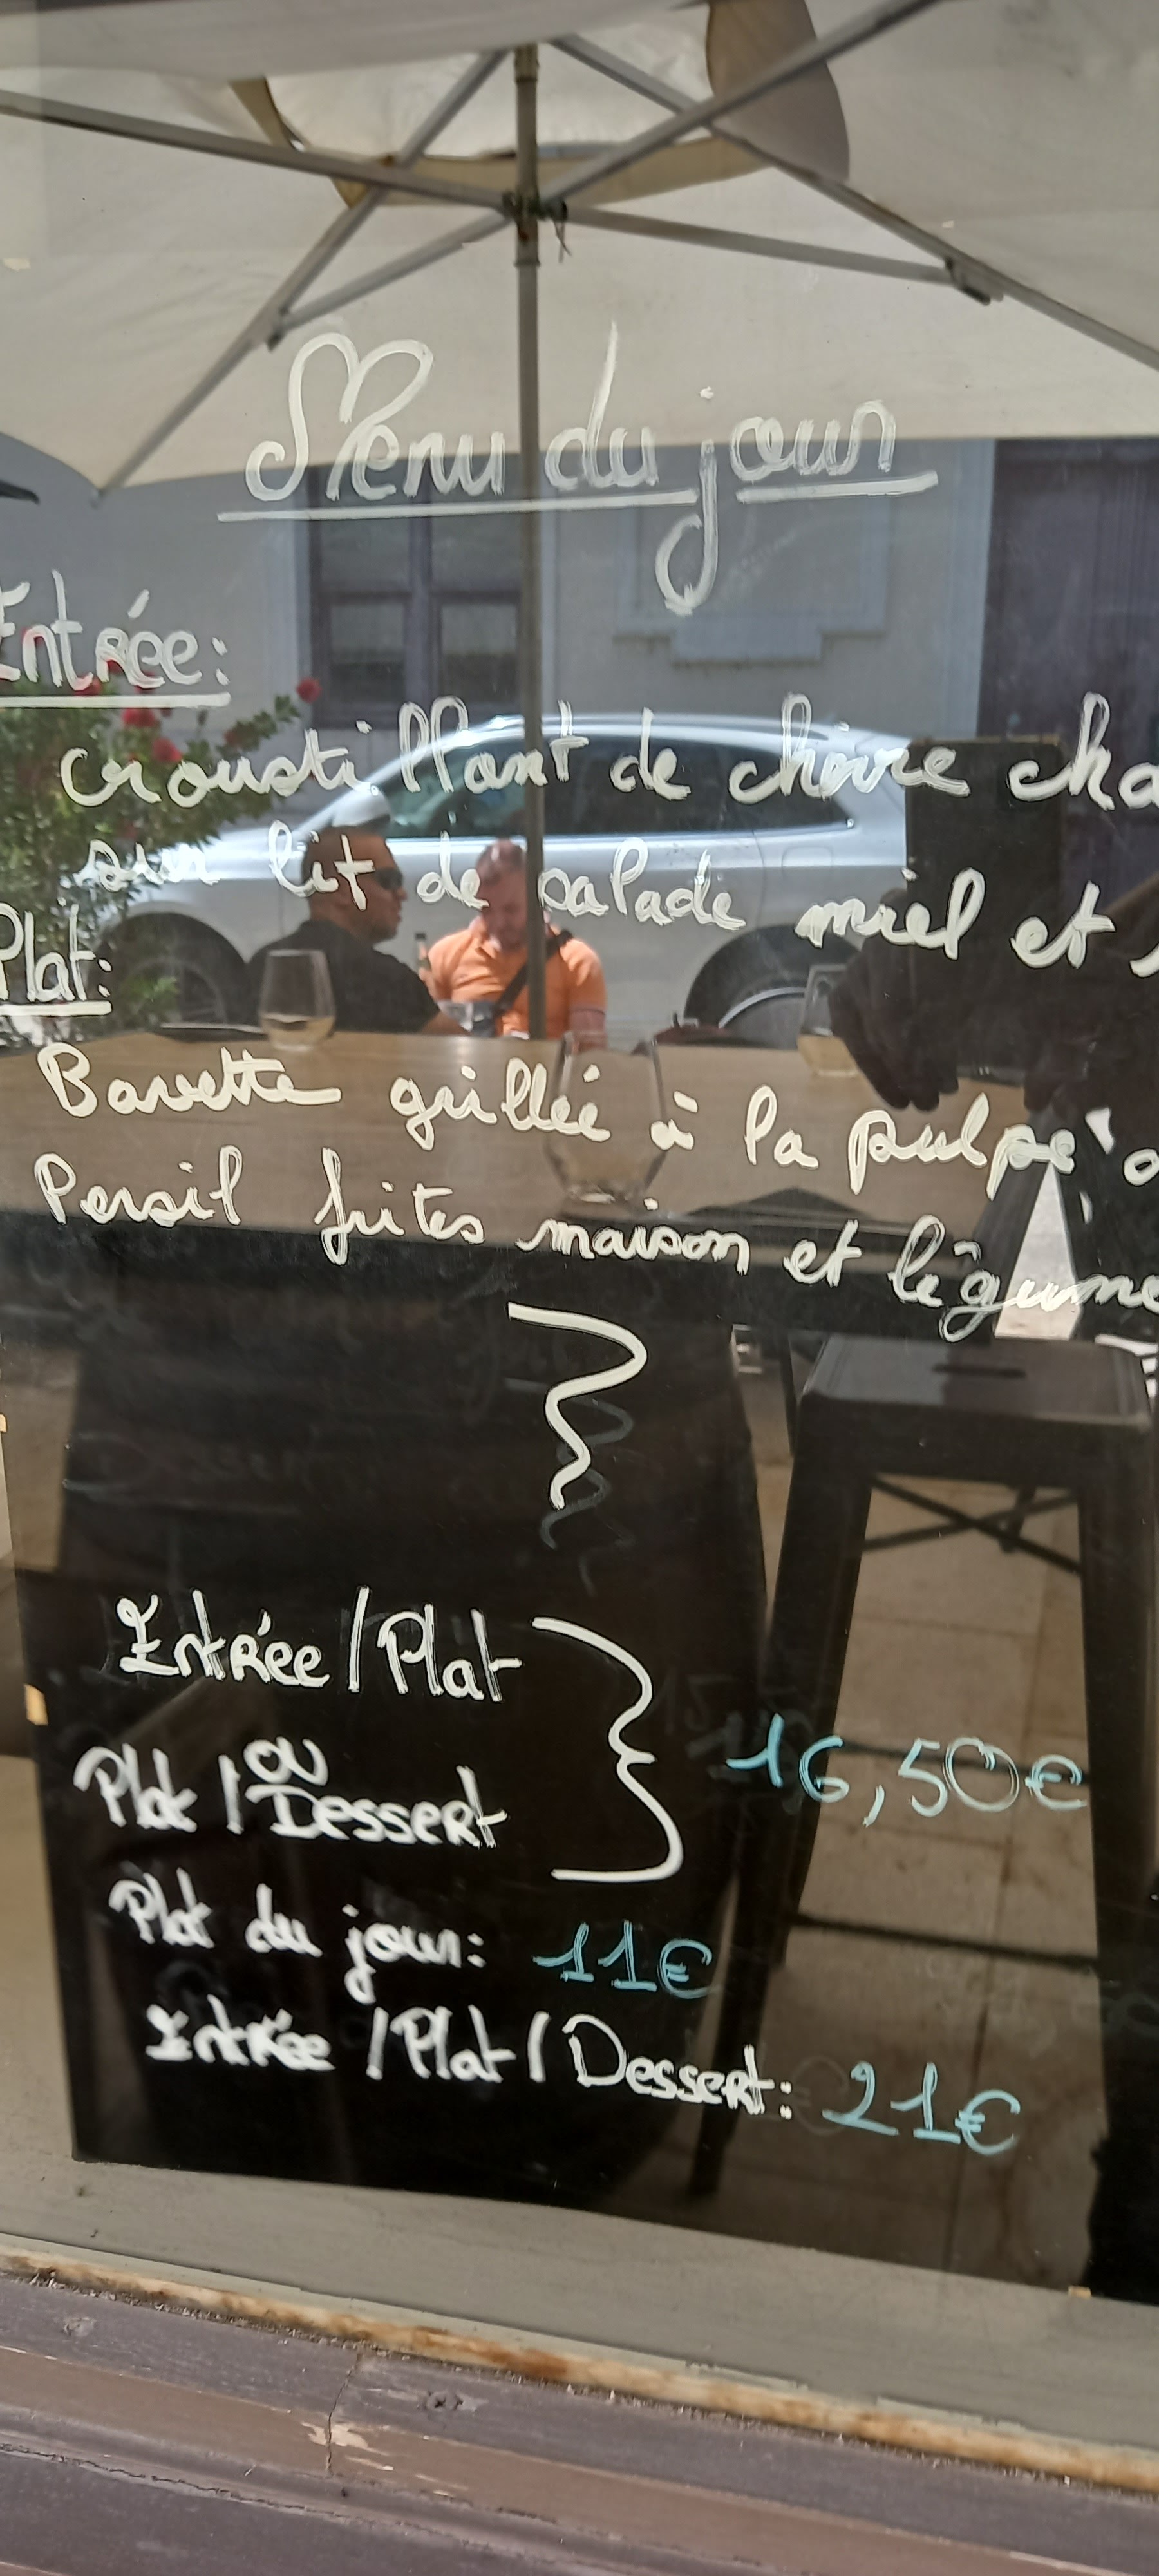 Menu du jour
Entrée:
croustillant de chèvre cha
sur lit de salade miel et
Plat:
Bavette grillée à la pulpe d
Persil frites maison et légume
Entrée/Plat
ou
Plat/Dessert
16,50€
Plat du jour: 11€
Entrée/Plat/Dessert: 21€